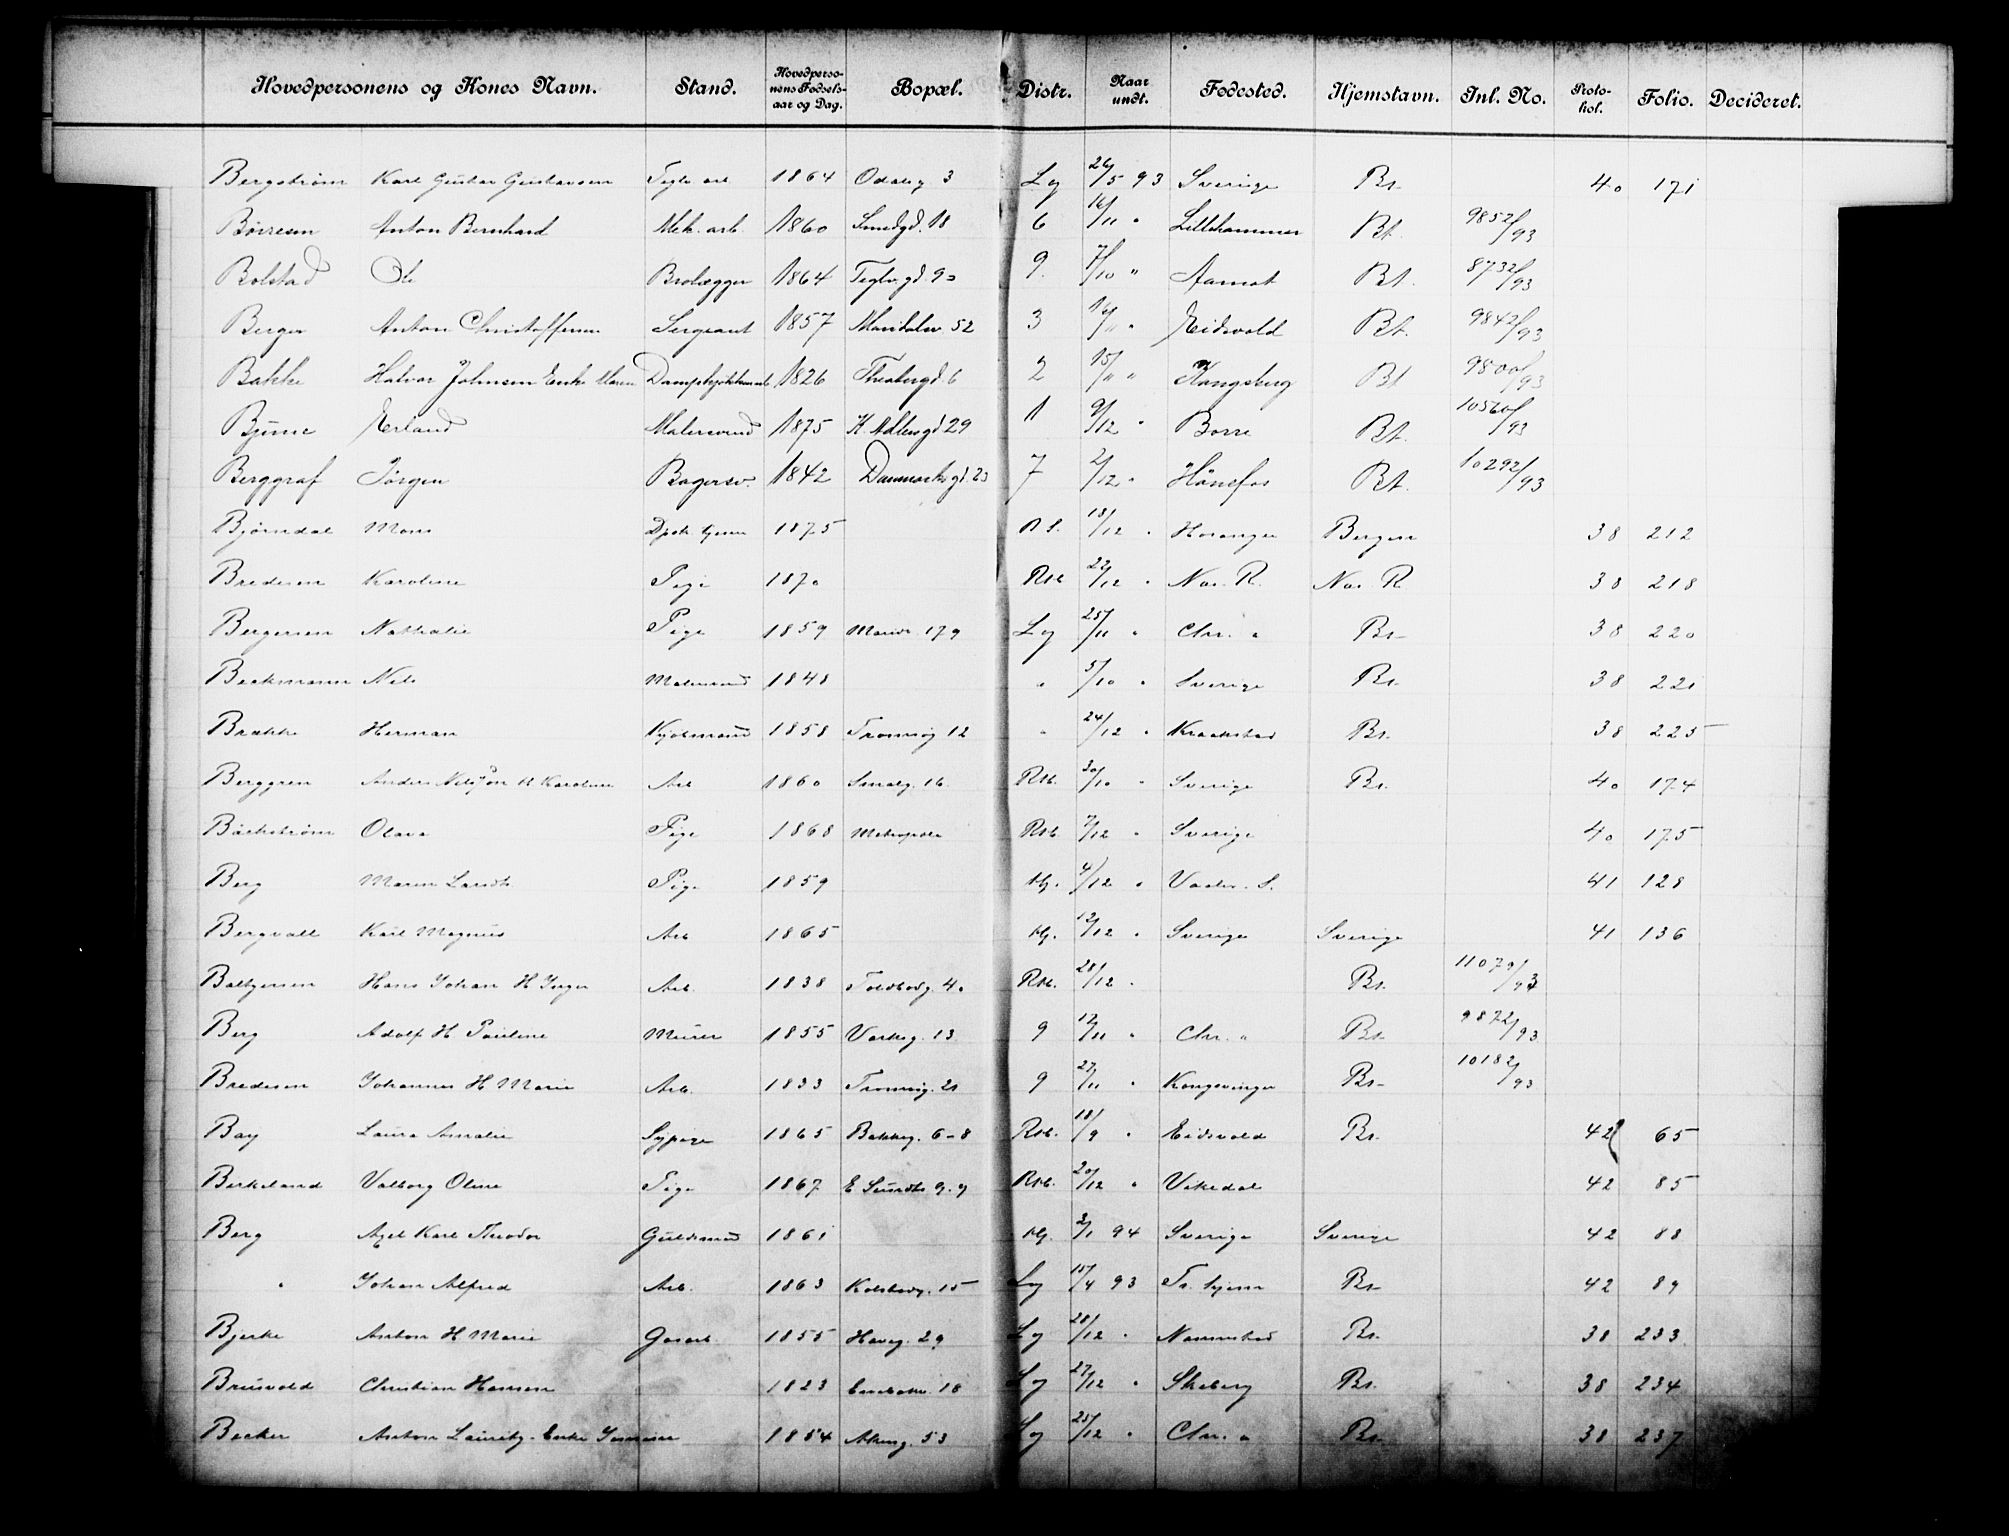 Hovedpersonens og Kones Navn. Stand. Hovedpersonens Fødselsaar og Dag. Bopæl. Distr. Naar undt. Fødested. Hjemstavn. Inl. No. Protokol. Folio. Decideret.
Bergstrøm Karl Gustav Gustavsen Tegle arb. 1864 Odalsg 3 Lg 26/5 93 Sverige Bt. 40 171
Børresen Anton Bernhard Mek. arb. 1860 Smedgd. 18 6 16/11 " Lillehammer Bt. 9852/93
Bolstad Ole Brolægger 1864 9 7/10 " Aamot Bt. 8732/93
Berger Anton Christoffersen Sergeant 1857 Maridalsv. 52 3 16/11 " Eidsvold Bt. 9842/93
Bakke Halvor Johnsen Enke Maren 1826 Theatergd. 6 2 15/" " Kongsberg Bt 9800/93
Bjune Erland Malersvend 1875 29 1 9/12 " Borre Bt. 10560/93
Berggraf Jørgen Bagersv. 1842 Danmarksgd. 23 7 2/12 " Hönefos Bt. 10292/93
Bjørndal Mons 1875 18/12 " Hosanger Bergen 38 212
Bredesen Karoline Pige 1870 Rtb 22/12 " Nes. R. Nes. R 38 218
Bergersen Nathalie Pige 1859 Marids. 179 Lg 25/11 " Chr. a Bt 38 220
Beckmann Nils Malersvend 1848 " 5/10 " Sverige Bt. 38 221
Brække Herman Kjøbmand 1858 Tromsøg 12 " 24/12 " Kraakstad Bt. 38 225
Berggren Anders Nilsson H Karoline Arb 1860 Smalg. 16 Rtb. 30/10 " Sverige Bt. 40 174
Bäckstrøm Olava Pige 1868 Metropole Rtb. 7/12 " Sverige 40 175
Berg Maren Larsdtr Pige 1859 4/12 " Vaaler. S. 41 128
Bergvall Karl Magnus Arb 1865 12/12 " Sverige Sverige 41 136
Baltzersen Hans Johan H Inger Arb. 1838 Toldbodg. 40 Rtb. 28/12 " Bt. 11079/93
Berg Adolf H Pauline Murer 1855 Verksg. 13 9 17/11 " Chr. a Bt. 9872/93
Bredesen Johannes H Marie Arb. 1833 Tromsøg. 21 9 27/11 " Kongsvinger Bt 10182/93
Bay Laura Amalie Sypige 1865 Bakkeg. 6-8 Rtb. 18/9 " Eidsvold Bt. 42 65
Berkeland Valborg Oline Pige 1867 E Sundts g. 9 Rtb. 20/12 " Vikedal 42 85
Berg Axel Karl Theodor Guldsmed 1861 2/1 94 Sverige Sverige 42 88
" Johan Alfred Arb. 1863 15 Lg 15/4 93 Tr. hjem Bt 42 89
Bjerke Anton H Marie Gasarb. 1855 Haveg. 29 Lg 28/12 " Nannestad Bt. 38 233
Brusvold Christian Hansen 1823 Enebakv. 18 Lg 27/12 " Skeberg Bt. 38 234
Becker Anton Lauritz. Enke 1854 Akersg. 53 Lg 25/12 " Chr. a Bt. 38 237